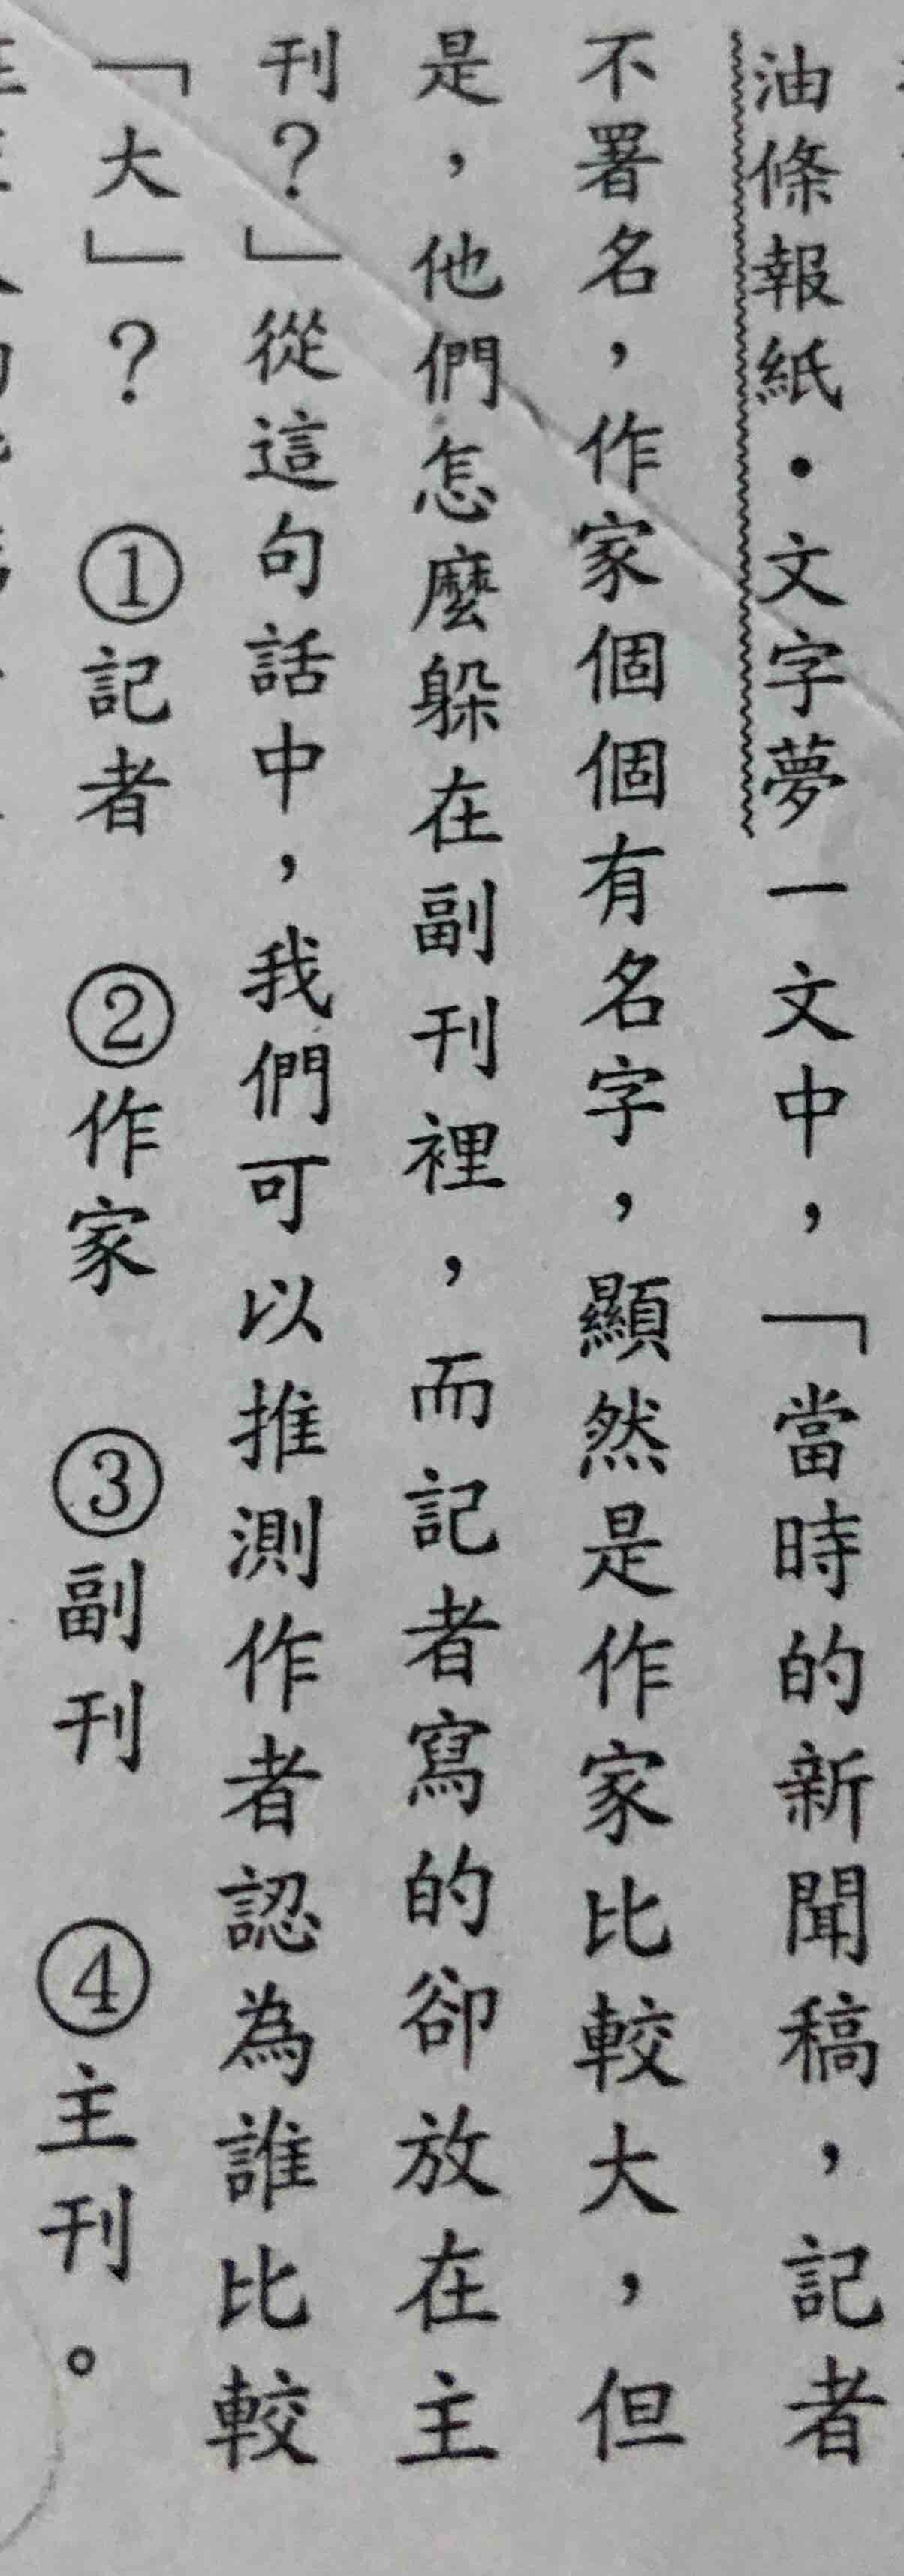 油條報紙•文字夢一文中，「當時的新聞稿，記者
不署名，作家個個有名字，顯然是作家比較大，但
是，他們怎麼躲在副刊裡，而記者寫的卻放在主
刊？」從這句話中，我們可以推測作者認為誰比較
「大」？　①記者　②作家　③副刊　④主刊。